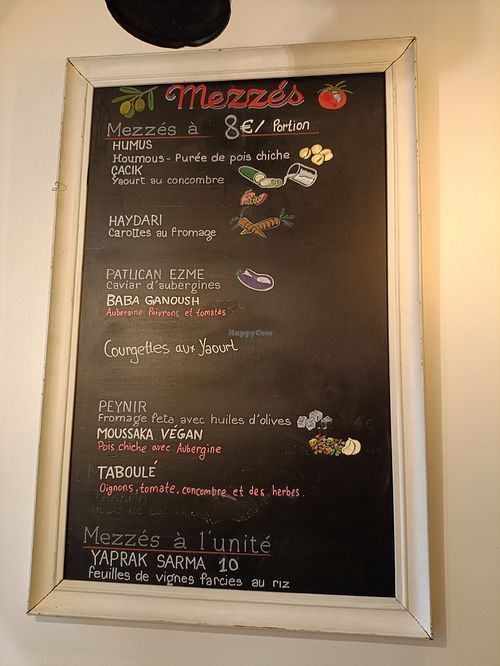 Mezzés
Mezzés à 8€/ Portion
HUMUS
Houmous - Purée de pois chiche
ÇACIK
Yaourt au concombre
HAYDARI
Carottes au fromage
PATLICAN EZME
Caviar d'aubergines
BABA GANOUSH
Aubergine Poivrons et tomates
HappyCow
Courgettes aux Yaourt
PEYNIR
Fromage feta avec huiles d'olives
MOUSSAKA VÉGAN
Pois chiche avec Aubergine
TABOULÉ
Oignons, tomate, concombre et des herbes.
Mezzés à l'unité
YAPRAK SARMA 10
feuilles de vignes farcies au riz